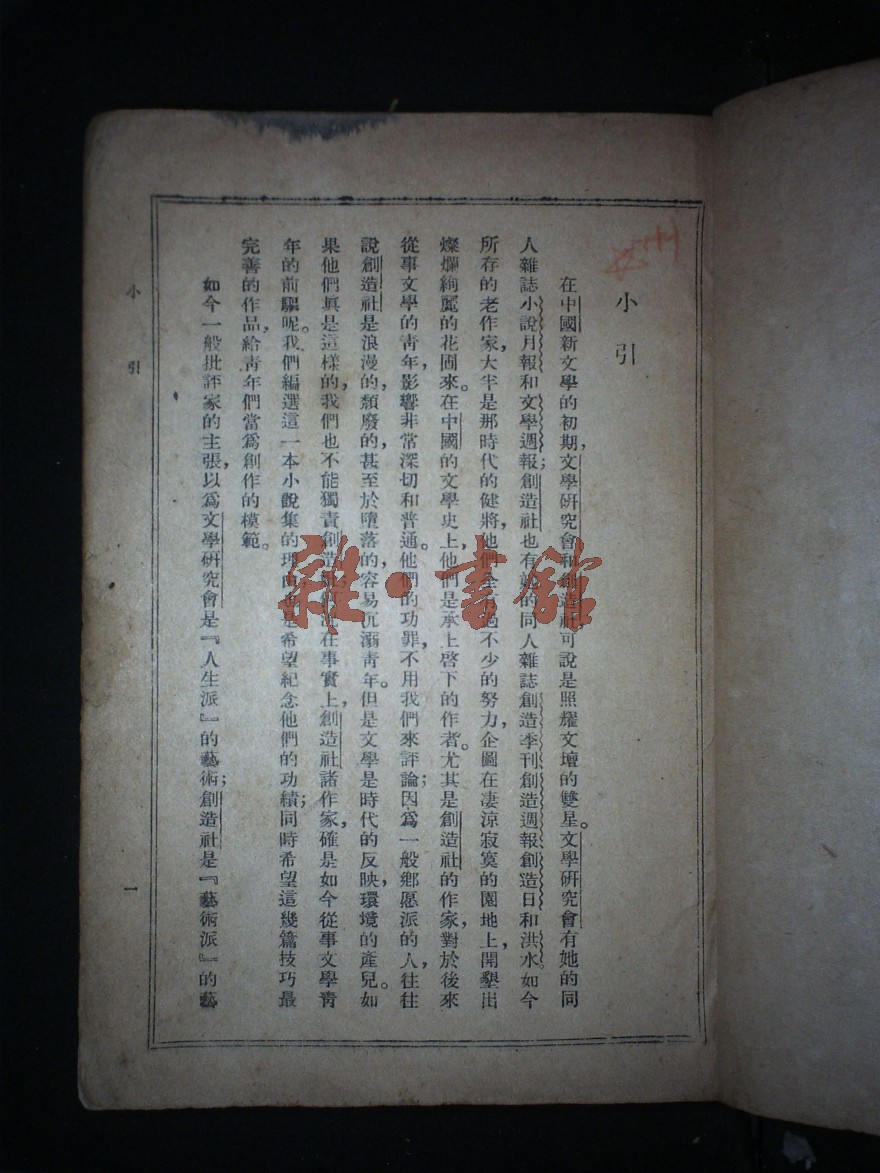 小引
在中國新文學的初期，文學研究會和創造社，可說是照耀文壇的雙星。文學研究會有她的同
人雜誌小說月報和文學週報；創造社也有她的同人雜誌創造季刊創造週報創造日和洪水。如今
所存的老作家，大半是那時代的健將，他們全有過不少的努力，企圖在凄涼寂寞的園地上，開墾出
燦爛絢麗的花圃來。在中國的文學史上，他們是承上啓下的作者。尤其是創造社的作家，對於後來
從事文學的靑年，影響非常深切和普通。他們的功罪，不用我們來評論；因爲一般鄉愿派的人，往往
說創造社是浪漫的，頹廢的，甚至於墮落的，容易沉溺靑年。但是文學是時代的反映，環境的產兒。如
果他們眞是這樣的，我們也不能獨責創造社；在事實上，創造社諸作家，確是如今從事文學靑
年的前驅呢。我們編選這一本小說集的理由，也是希望紀念他們的功績；同時希望這幾篇技巧最
完善的作品，給靑年們當爲創作的模範。
如今一般批評家的主張，以爲文學研究會是『人生派』的藝術；創造社是『藝術派』的藝
小引
一
雜·書館